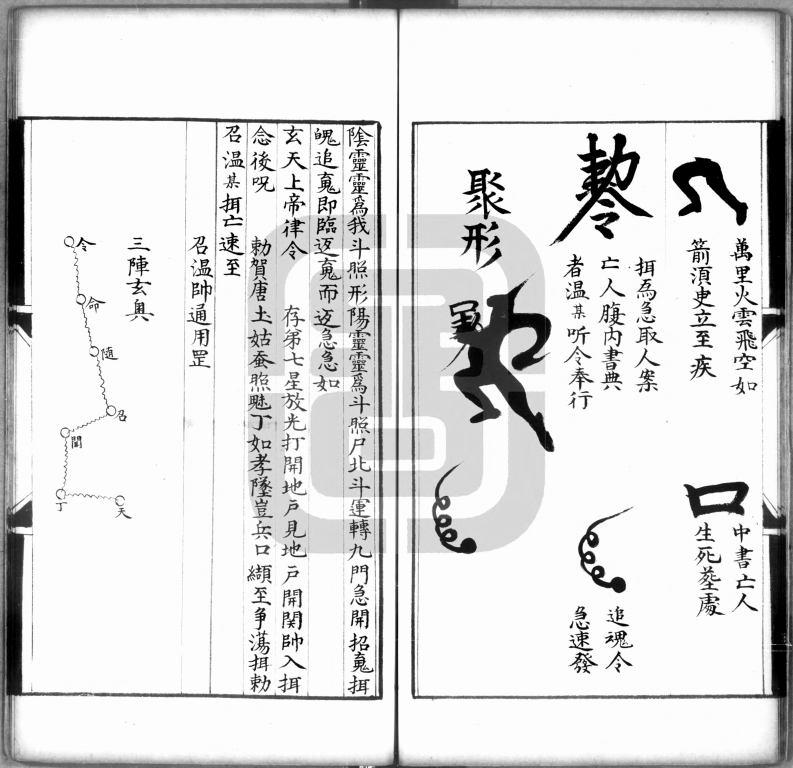 萬里火雲飛空如
箭須史立至疾
口
中書亡人
生死塟處
勅令
抯為急取人案
亡人腹内書典
者温某听令奉行
追魂令
急速發
聚形
陰靈靈爲我斗照形陽靈靈爲斗照尸北斗運轉九門急開招䰟抯
魄追䰟即臨返䰟而返急急如
玄天上帝律令 存第七星放光打開地戶見地戶開関帥入抯
念後呪 勅賀唐土姑蚕照魅丁如孝墜豈兵口纈至争蕩抯勅
召温某抯亡速至
召温帥通用罡
三陣玄奥
令
命
隨
召
丁
天